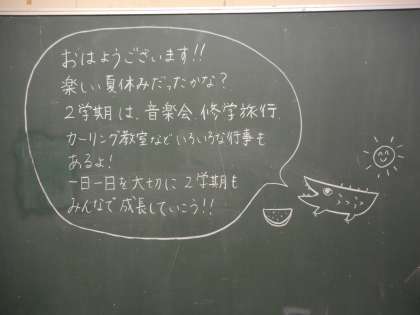 おはようございます!!
楽しい夏休みだったかな?
2学期は、音楽会、修学旅行、
カーリング教室などいろいろな行事も
あるよ!
一日一日を大切に2学期も
みんなで成長していこう!!